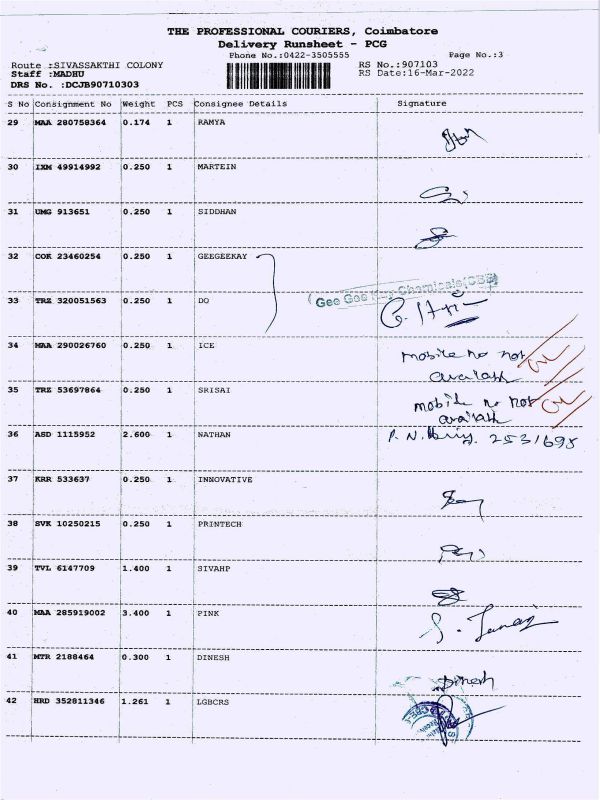 THE PROFESSIONAL COURIERS, Coimbatore
Delivery Runsheet - PCG
Phone No.:0422-3505555 Page No.:3
Route :SIVASSAKTHI COLONY RS No.:907103
Staff :MADHU RS Date:16-Mar-2022
DRS No. :DCJB90710303
S No Consignment No Weight PCS Consignee Details Signature
29 MAA 280758364 0.174 1 RAMYA
30 IXM 49914992 0.250 1 MARTEIN
31 UMG 913651 0.250 1 SIDDHAN
32 COK 23460254 0.250 1 GEEGEEKAY
Gee Gee Kay Chemicals(CBE)
33 TRZ 320051563 0.250 1 DO
34 MAA 290026760 0.250 1 ICE
mobile no not
available
35 TRZ 53697864 0.250 1 SRISAI
mobile no not
available
36 ASD 1115952 2.600 1 NATHAN P. N. 2531695
37 KRR 533637 0.250 1 INNOVATIVE
38 SVK 10250215 0.250 1 PRINTECH
39 TVL 6147709 1.400 1 SIVAHP
40 MAA 285919002 3.400 1 PINK
41 MTR 2188464 0.300 1 DINESH
Dinesh
42 HRD 352811346 1.261 1 LGBCRS